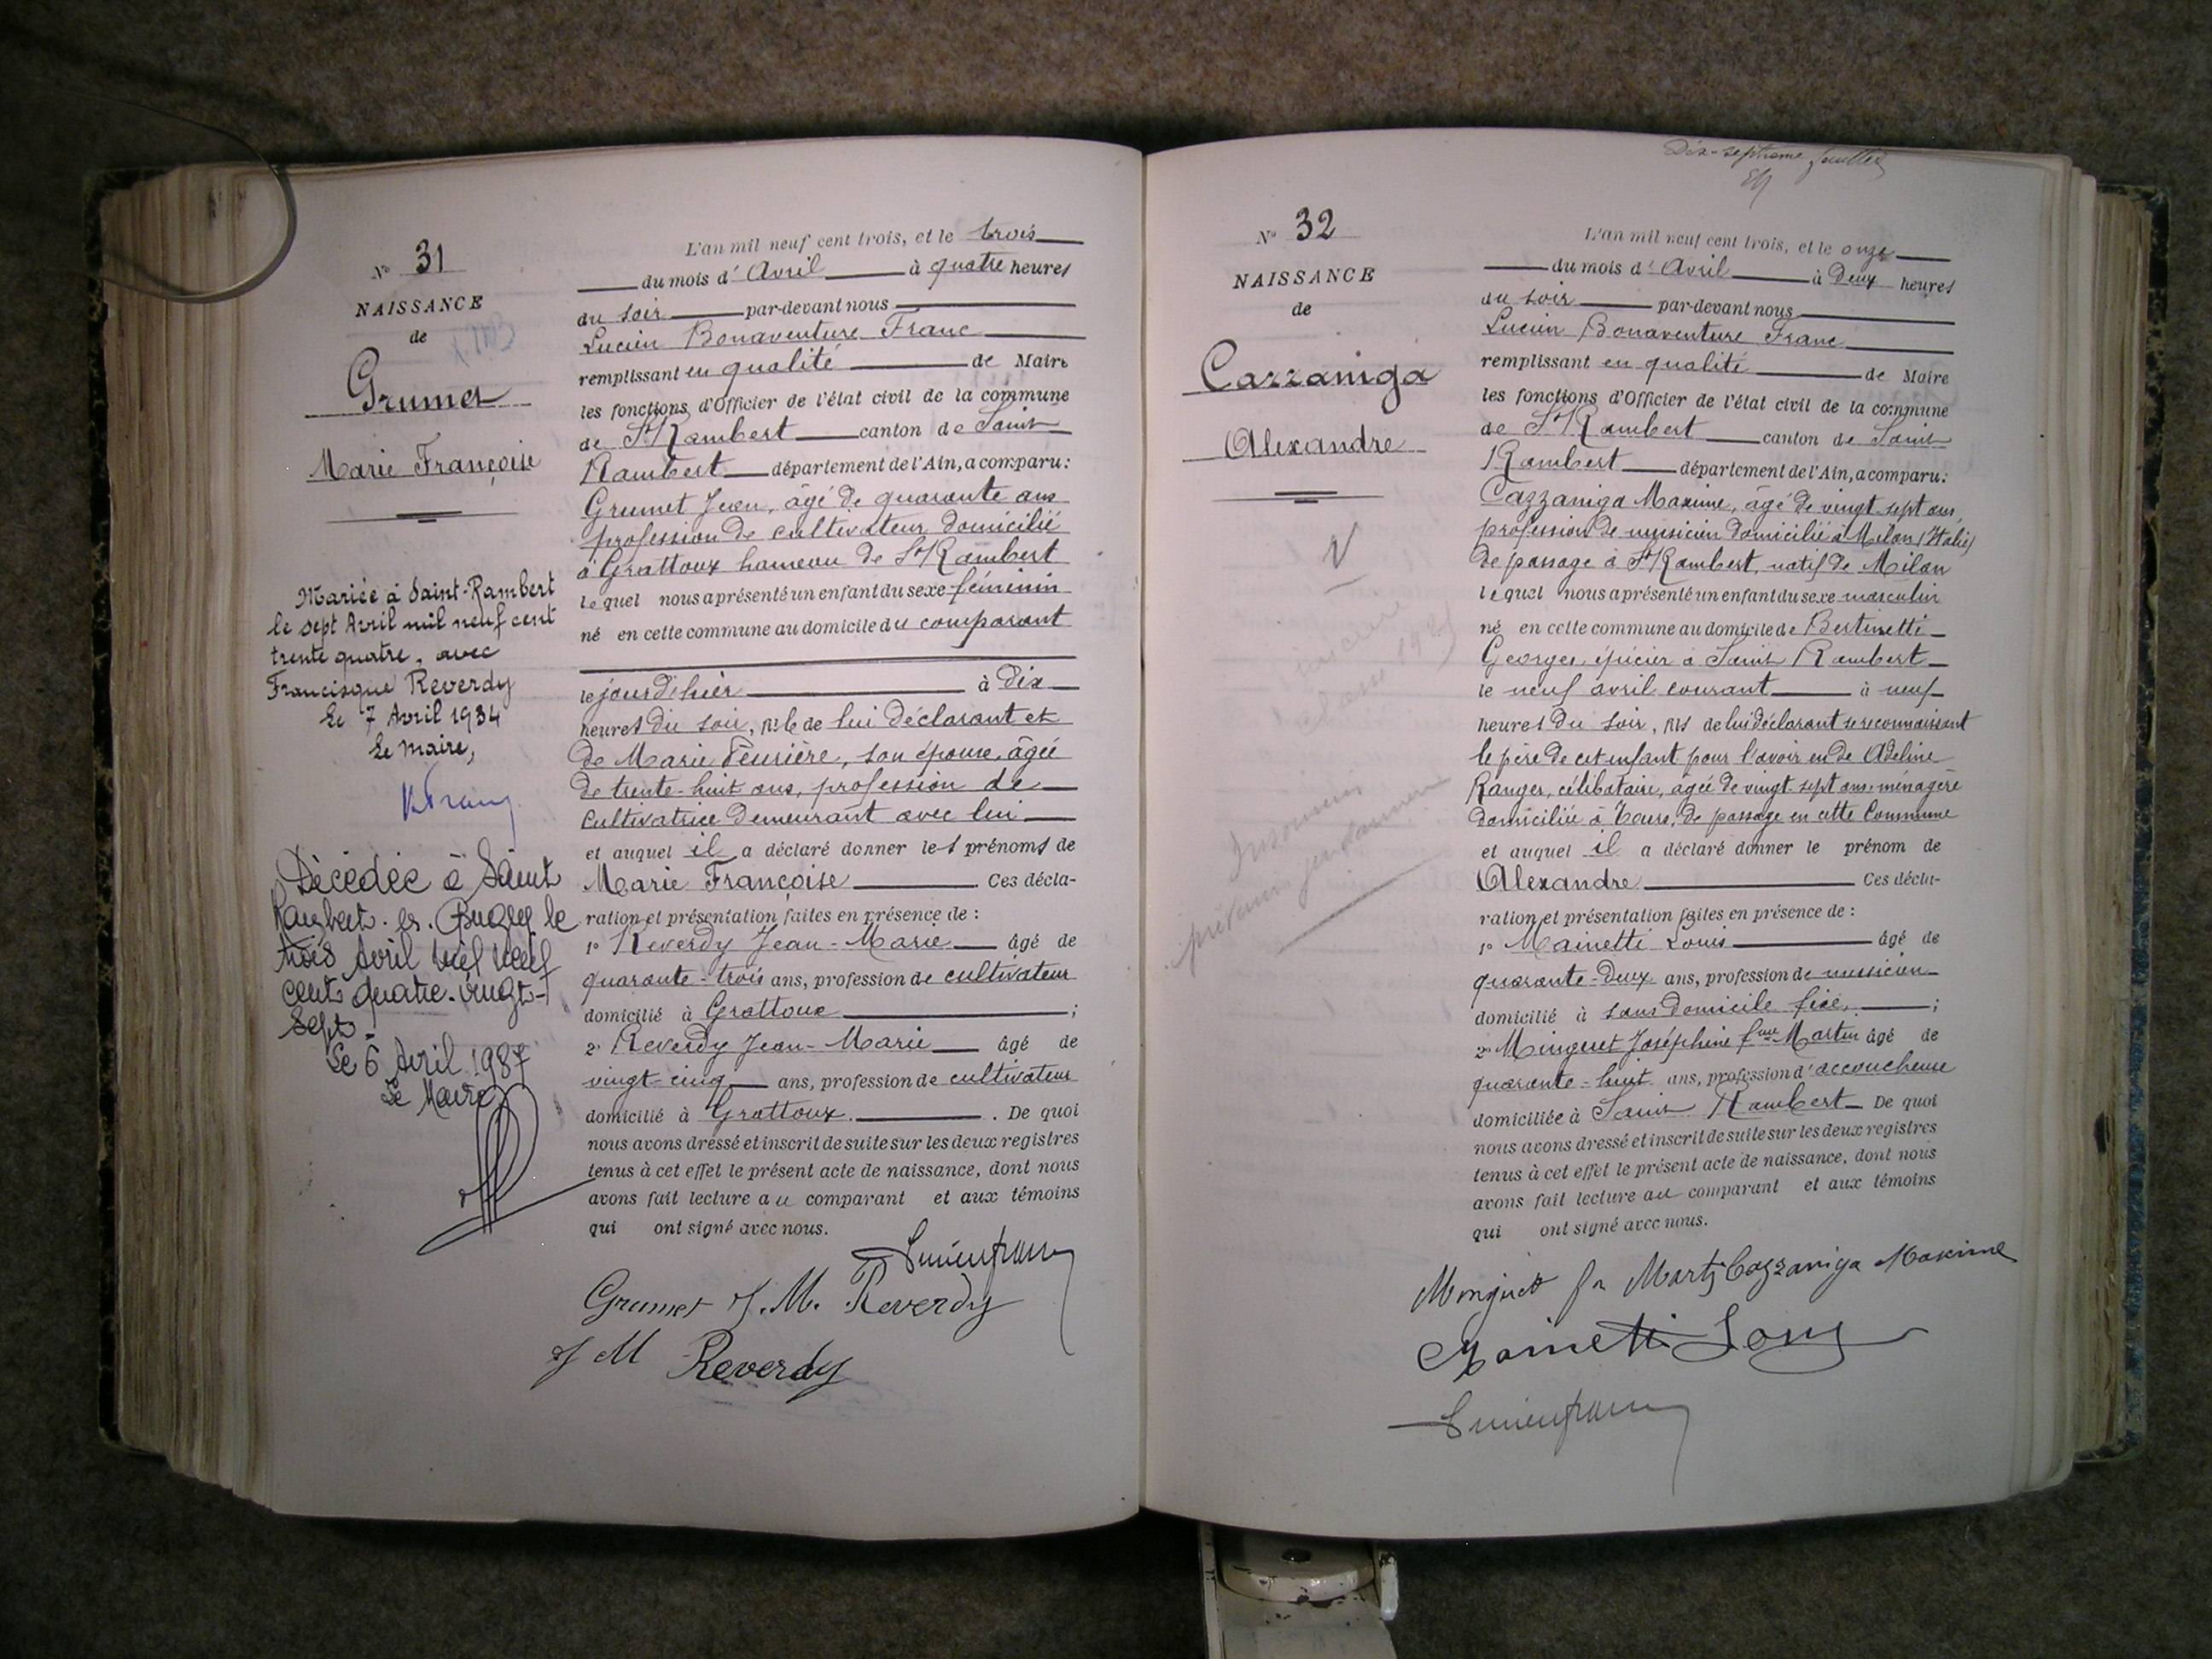 N° 31
NAISSANCE
de
Grumet
Marie Françoise
Mariée à Saint-Rambert
le sept Avril mil neuf cent
trente quatre, avec
Francisque Reverdy
Le 7 Avril 1934
Le Maire,
Décédée à Saint
Rambert-en-Bugey le
trois Avril mil neuf
cent quatre-vingt-
sept.
Le 6 Avril 1987
Le Maire
L'an mil neuf cent trois, et le trois
du mois d'Avril à quatre heures
du soir par-devant nous
Lucien Bonaventure Franc
remplissant en qualité de Maire
les fonctions d'Officier de l'état civil de la commune
de St Rambert canton de Saint
Rambert département de l'Ain, a comparu:
Grumet Jean, âgé de quarante ans
profession de cultivateur domicilié
à Grattoux hameau de St Rambert
lequel nous a présenté un enfant du sexe féminin
né en cette commune au domicile du comparant
le jour d'hier à dix
heures du soir, née de lui déclarant et
de Marie Feurière, son épouse, âgée
de trente-huit ans, profession de
cultivatrice demeurant avec lui
et auquel il a déclaré donner les prénoms de
Marie Françoise Ces décla-
ration et présentation faites en présence de :
1° Reverdy Jean-Marie âgé de
quarante-trois ans, profession de cultivateur
domicilié à Grattoux ;
2° Reverdy Jean-Marie âgé de
vingt-cinq ans, profession de cultivateur
domicilié à Grattoux. De quoi
nous avons dressé et inscrit de suite sur les deux registres
tenus à cet effet le présent acte de naissance, dont nous
avons fait lecture au comparant et aux témoins
qui ont signé avec nous.
Lucien Franc
Grumet J. M. Reverdy
J M Reverdy
Dix-septième feuillet
N° 32
NAISSANCE
de
Cazzaniga
Alexandre
V
L'an mil neuf cent trois, et le onze
du mois d'Avril à Deux heures
du soir par-devant nous
Lucien Bonaventure Franc
remplissant en qualité de Maire
les fonctions d'Officier de l'état civil de la commune
de St Rambert canton de Saint
Rambert département de l'Ain, a comparu:
Cazzaniga Maxime, âgé de vingt sept ans,
profession de musicien domicilié à Milan (Italie)
de passage à St Rambert, natif de Milan
lequel nous a présenté un enfant du sexe masculin
né en cette commune au domicile de Bertinetti
Georges, épicier à Saint Rambert
le neuf avril courant à neuf
heures du soir, fils de lui déclarant se reconnaissant
le père de cet enfant pour l'avoir eu de Adeline
Ranger, célibataire, âgée de vingt-sept ans, ménagère
domiciliée à Tours, de passage en cette Commune
et auquel il a déclaré donner le prénom de
Alexandre Ces décla-
ration et présentation faites en présence de :
1° Mainetti Louis âgé de
quarante-deux ans, profession de musicien
domicilié à sans domicile fixe, ;
2° Minguet Joséphine fme Martin âgé de
quarante-huit ans, profession d'accoucheuse
domiciliée à Saint Rambert De quoi
nous avons dressé et inscrit de suite sur les deux registres
tenus à cet effet le présent acte de naissance, dont nous
avons fait lecture au comparant et aux témoins
qui ont signé avec nous.
Minguet fe Martin Cazzaniga Maxime
Mainetti Louis
Lucien Franc